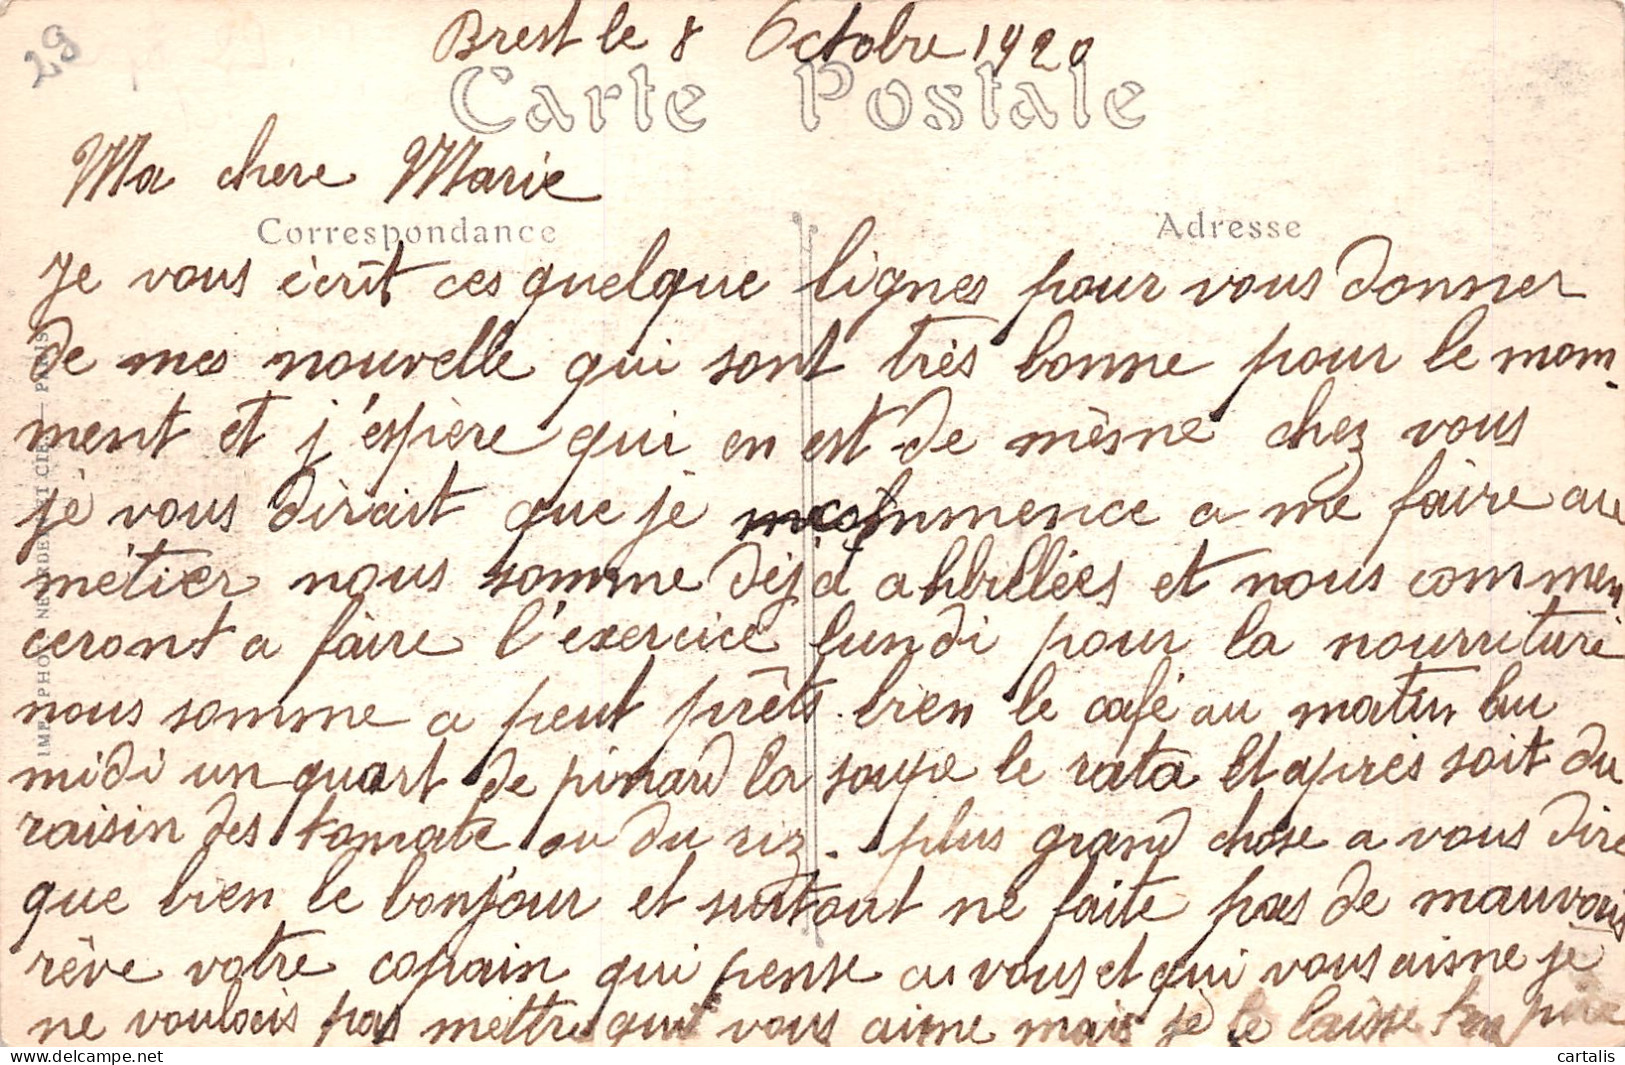 29
Brest le 8 Octobre 1920
Carte Postale
Ma chere Marie
Correspondance
Adresse
Je vous ècrit ces quelque lignes pour vous donner
de mes nouvelle qui sont très bonne pour le mom
ment et j'espière qui en est de mèsne chez vous
jè vous dirait que je commence a me faire au
métier nous somme déjà ahbillées et nous commen
ceront a faire l'exercice lundi pour la nourriture
nous somme a peut prêts bien le café au matin au
midi un quart de pinard la soupe le rata et après soit du
raisin des tomate ou du riz. plus grand chose a vous dire
que bien le bonjour et surtout ne faite pas de mauvais
rève votre copain qui pense a vous et qui vous aisne je
ne voulais pas mettre qui vous aime mais je le laisse
IMP. PHOT. NEURDEIN ET CIE — PARIS
cartalis